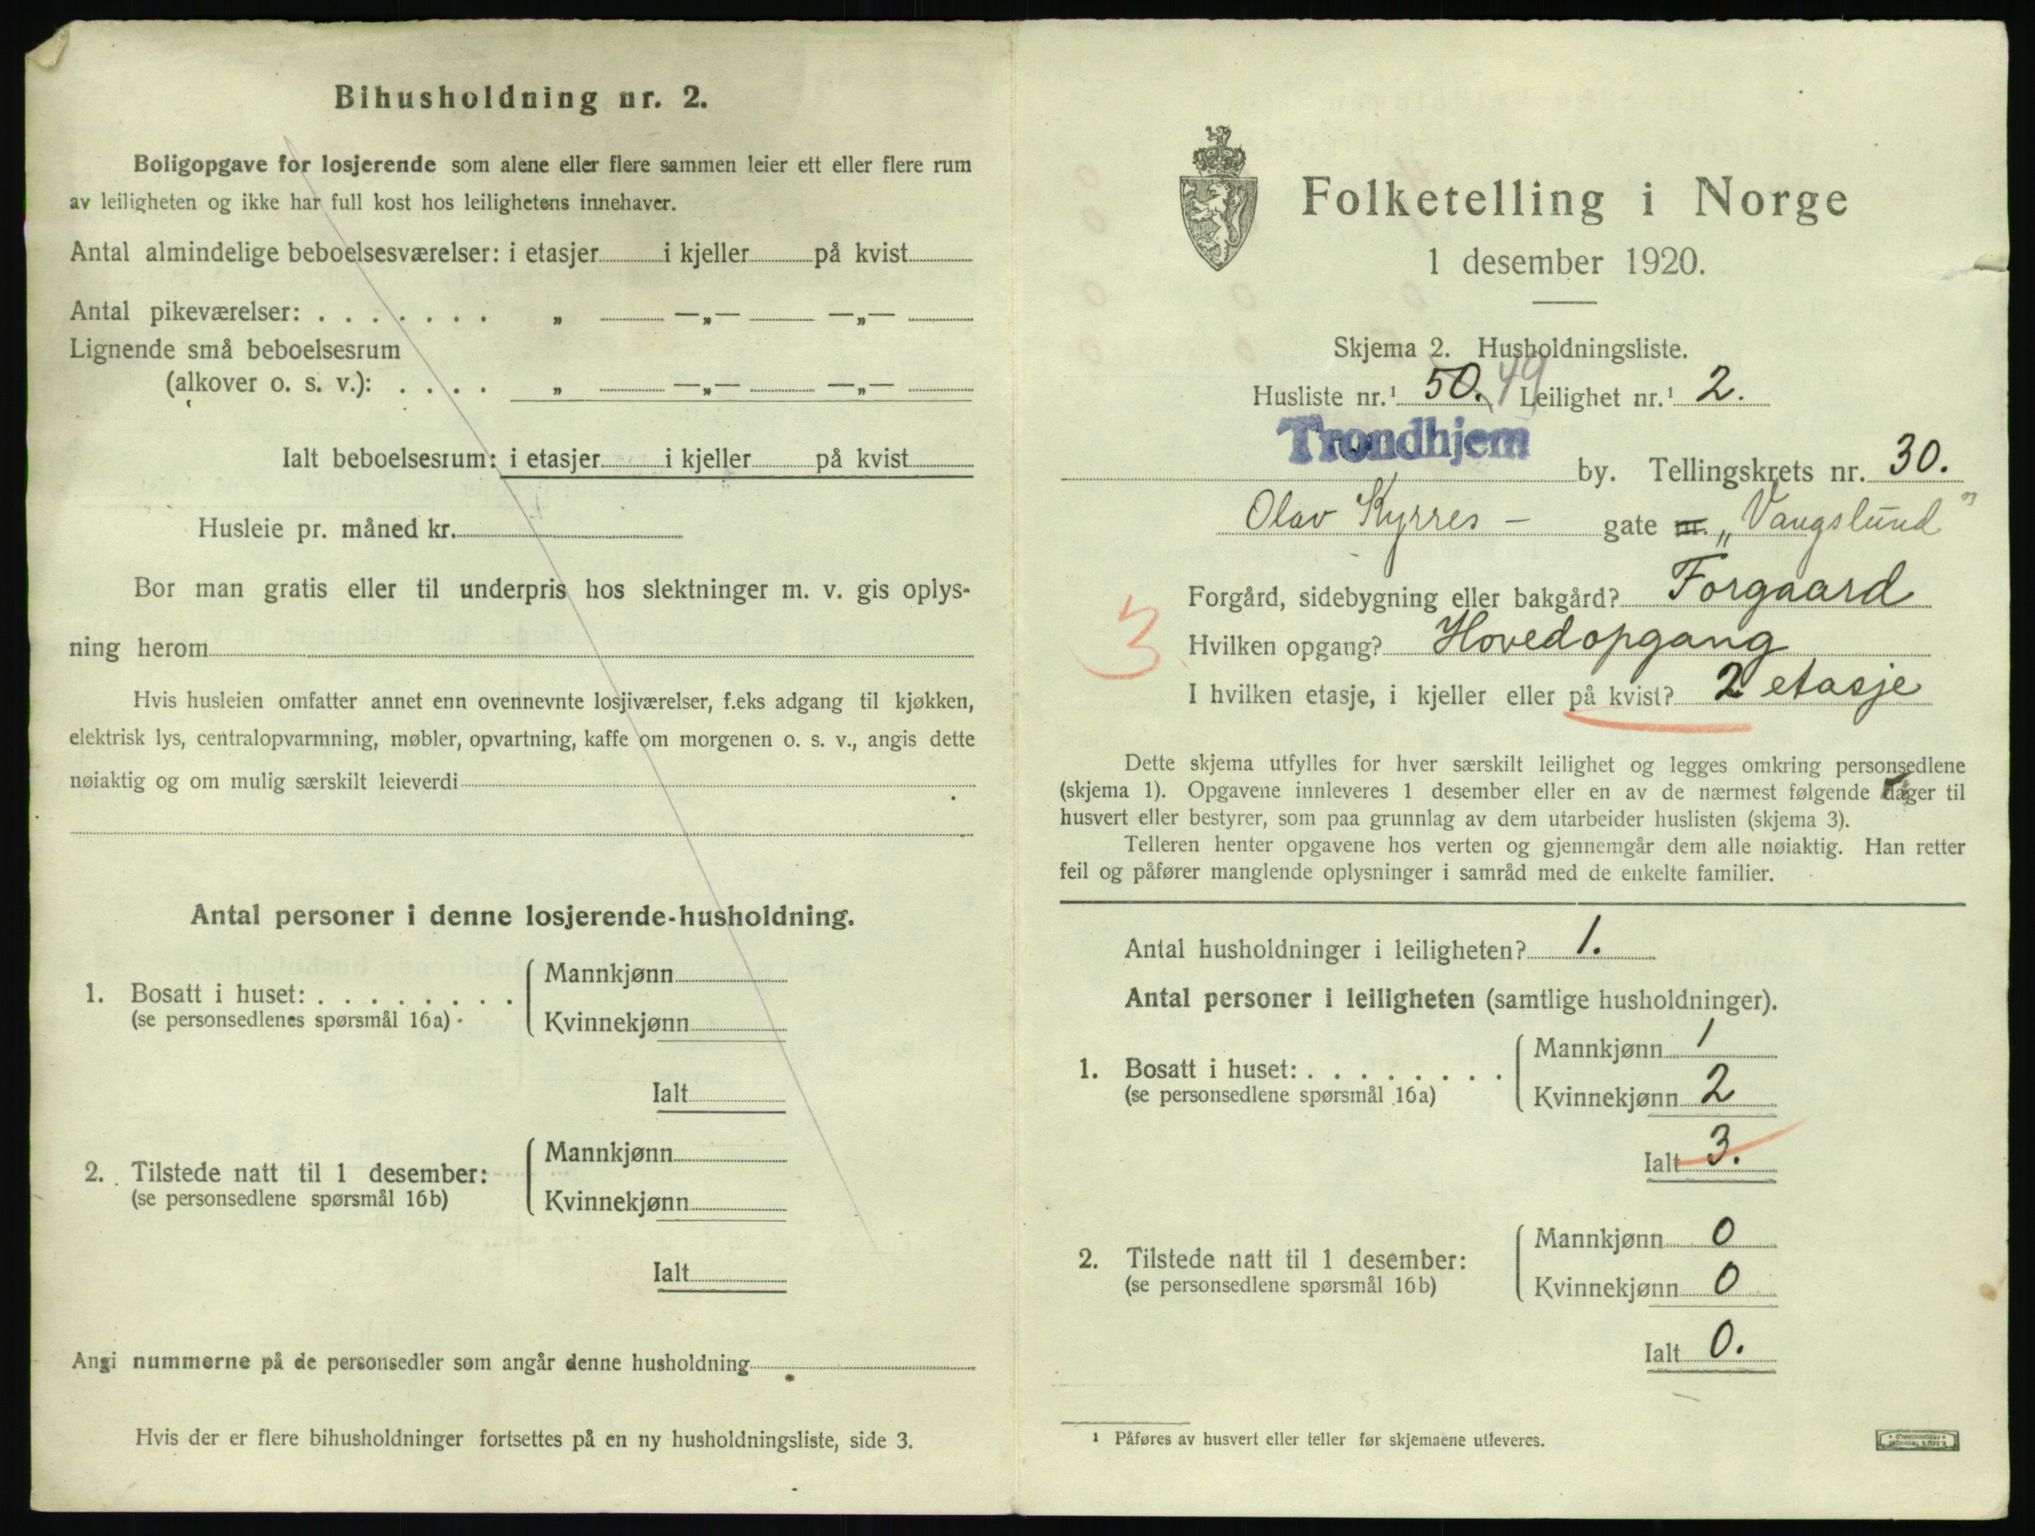 Bihusholdning nr. 2.
Boligopgave for losjerende som alene eller flere sammen leier ett eller flere rum
av leiligheten og ikke har full kost hos leilighetens innehaver.
Antal almindelige beboelsesværelser: i etasjer i kjeller på kvist
Antal pikeværelser: . . . . . . . „ —„— —„—
Lignende små beboelsesrum
(alkover o. s. v.): . . . . „ —„— —„—
Ialt beboelsesrum: i etasjer i kjeller på kvist
Husleie pr. måned kr.
Bor man gratis eller til underpris hos slektninger m. v. gis oplys-
ning herom
Hvis husleien omfatter annet enn ovennevnte losjiværelser, f.eks adgang til kjøkken,
elektrisk lys, centralopvarmning, møbler, opvartning, kaffe om morgenen o. s. v., angis dette
nøiaktig og om mulig særskilt leieverdi
Antal personer i denne losjerende-husholdning.
1. Bosatt i huset: . . . . . . . .
(se personsedlenes spørsmål 16a)
Mannkjønn
Kvinnekjønn
Ialt
2. Tilstede natt til 1 desember:
(se personsedlene spørsmål 16b)
Mannkjønn
Kvinnekjønn
Ialt
Angi nummerne på de personsedler som angår denne husholdning
Hvis der er flere bihusholdninger fortsettes på en ny husholdningsliste, side 3.
Folketelling i Norge
1 desember 1920.
Skjema 2. Husholdningsliste.
Husliste nr.¹ 50. 49 Leilighet nr.¹ 2.
Trondhjem by. Tellingskrets nr. 30.
Olav Kyrres – gate nr. „Vangslund”
Forgård, sidebygning eller bakgård? Forgaard
3
Hvilken opgang? Hovedopgang
I hvilken etasje, i kjeller eller på kvist? 2 etasje
Dette skjema utfylles for hver særskilt leilighet og legges omkring personsedlene
(skjema 1). Opgavene innleveres 1 desember eller en av de nærmest følgende dager til
husvert eller bestyrer, som paa grunnlag av dem utarbeider huslisten (skjema 3).
Telleren henter opgavene hos verten og gjennemgår dem alle nøiaktig. Han retter
feil og påfører manglende oplysninger i samråd med de enkelte familier.
Antal husholdninger i leiligheten? 1.
Antal personer i leiligheten (samtlige husholdninger).
1. Bosatt i huset: . . . . . . . .
(se personsedlene spørsmål 16a)
Mannkjønn 1
Kvinnekjønn 2
Ialt 3.
2. Tilstede natt til 1 desember:
(se personsedlene spørsmål 16b)
Mannkjønn 0
Kvinnekjønn 0
Ialt 0.
¹ Påføres av husvert eller teller før skjemaene utleveres.